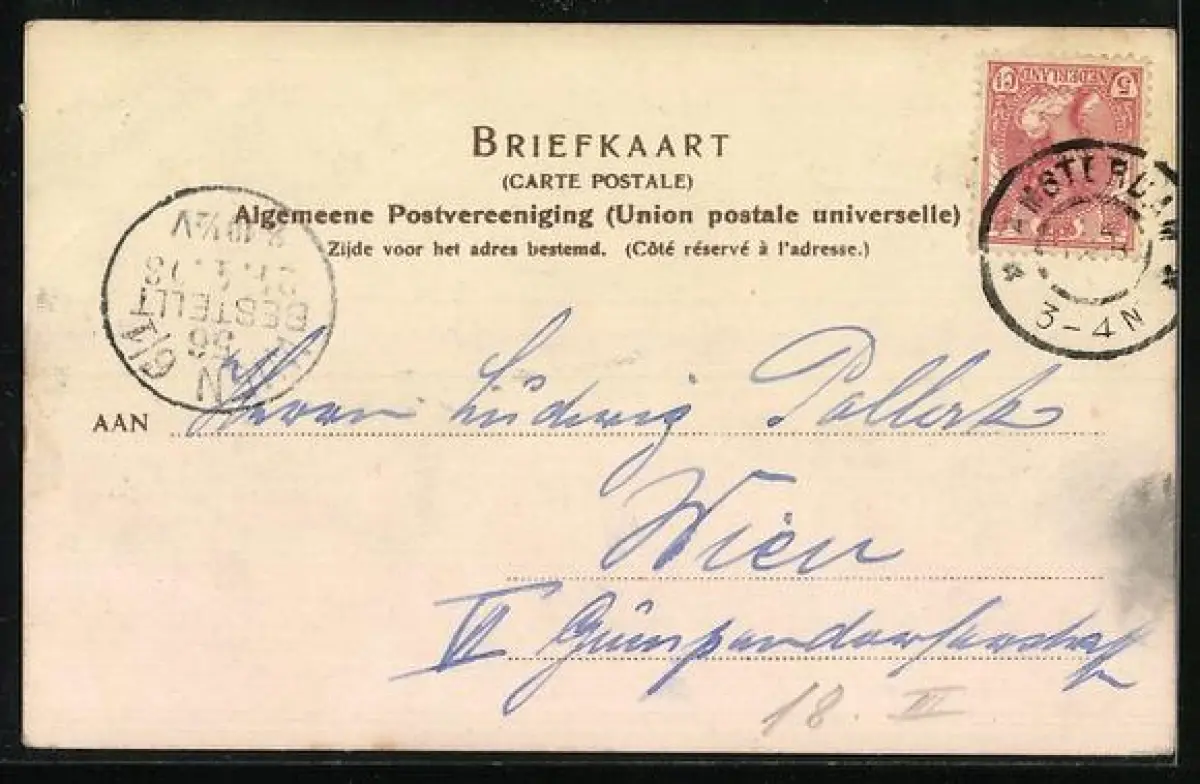 5 Ct
NEDERLAND
BRIEFKAART
(CARTE POSTALE)
Algemeene Postvereeniging (Union postale universelle)
Zijde voor het adres bestemd. (Côté réservé à l'adresse.)
AMSTERDAM
3-4N
WIEN
6/1
56
BESTELLT
AAN Herrn Ludwig Pollak
Wien
VI Gumpendorferstr
18. VI